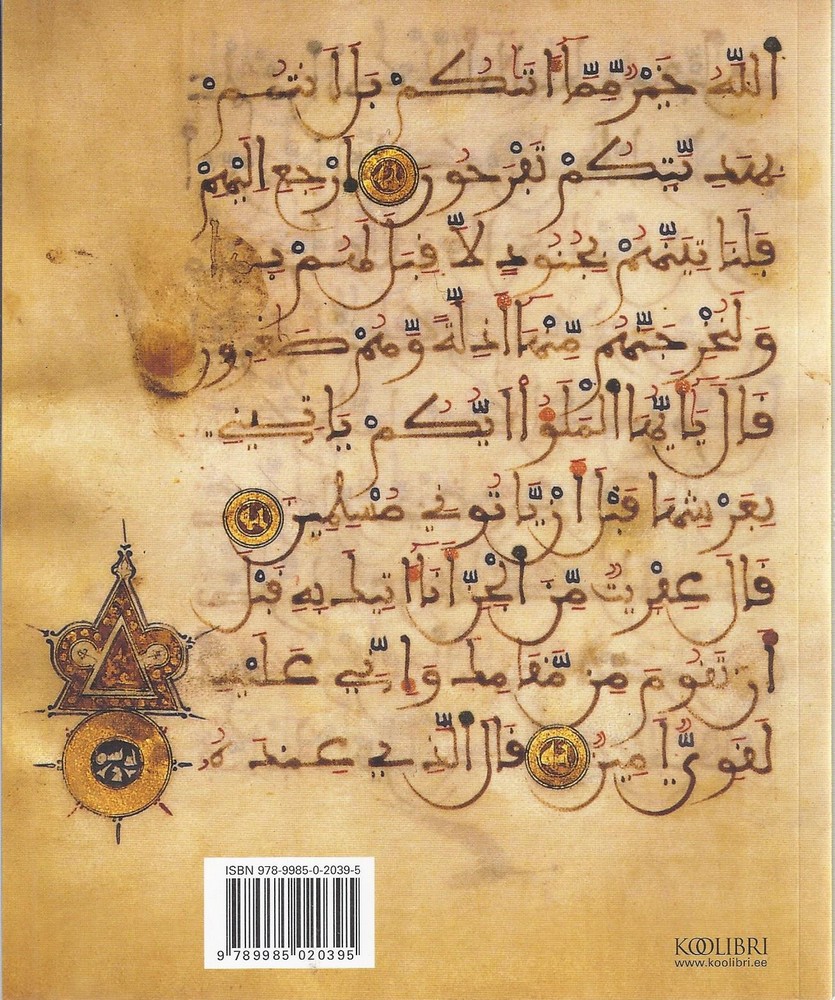 اللَّهُ خَيْرٌ مِّمَّا ءَاتَىٰكُمْ بَلْ أَنتُمْ
بِهَدِيَّتِكُمْ تَفْرَحُونَ اِرْجِعِ اِلَيْهِمْ
فَلَنَاتِيَنَّهُمْ بِجُنُودٍ لَّا قِبَلَ لَهُمْ بِهَا
وَلَنُخْرِجَنَّهُمْ مِّنْهَا أَذِلَّةً وَّهُمْ صَٰغِرُونَ
قَالَ يَٰأَيُّهَا الْمَلَؤُا أَيُّكُمْ يَاتِينِي
بِعَرْشِهَا قَبْلَ أَنْ يَّاتُونِي مُسْلِمِينَ
قَالَ عِفْرِيتٌ مِّنَ الْجِنِّ أَنَا ءَاتِيكَ بِهِ قَبْلَ
أَن تَقُومَ مِن مَّقَامِكَ وَإِنِّي عَلَيْهِ
لَقَوِيٌّ أَمِينٌ قَالَ الَّذِي عِندَهُ
ISBN 978-9985-0-2039-5
9 789985 020395
KOOLIBRI
www.koolibri.ee